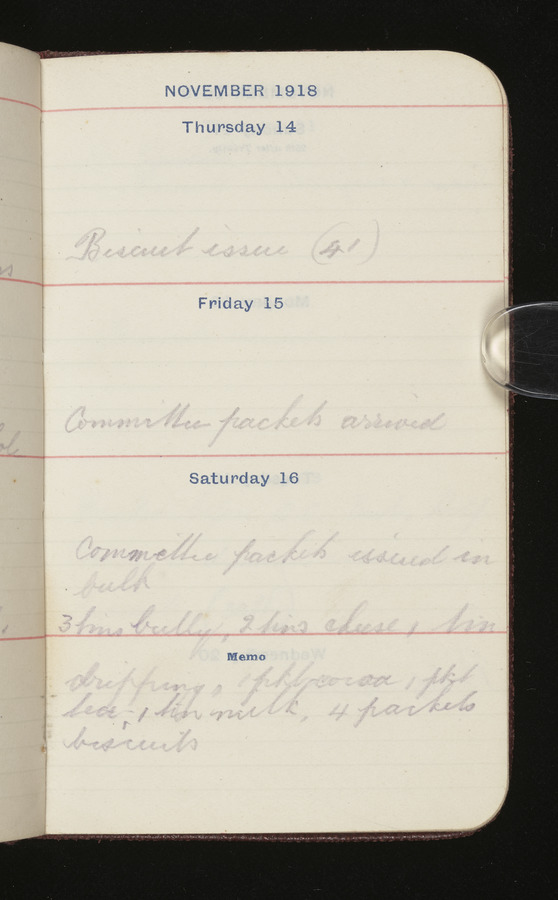 NOVEMBER 1918
Thursday 14
Biscuit issue (41)
Friday 15
Committee packets arrived
Saturday 16
Committee packets issued in
bulk
3 tins bully, 2 tins cheese, 1 tin
Memo
dripping, 1 pkt cocoa, 1 pkt
tea, 1 tin milk, 4 packets
biscuits